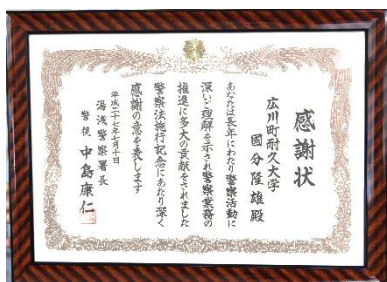 感謝状
広川町耐久大学
國分隆雄殿
あなたは長年にわたり警察活動に
深いご理解を示され警察業務の
推進に多大の貢献をされました
警察法施行記念にあたり深く
感謝の意を表します
平成二十七年七月十日
湯浅警察署長
警視 中島康仁